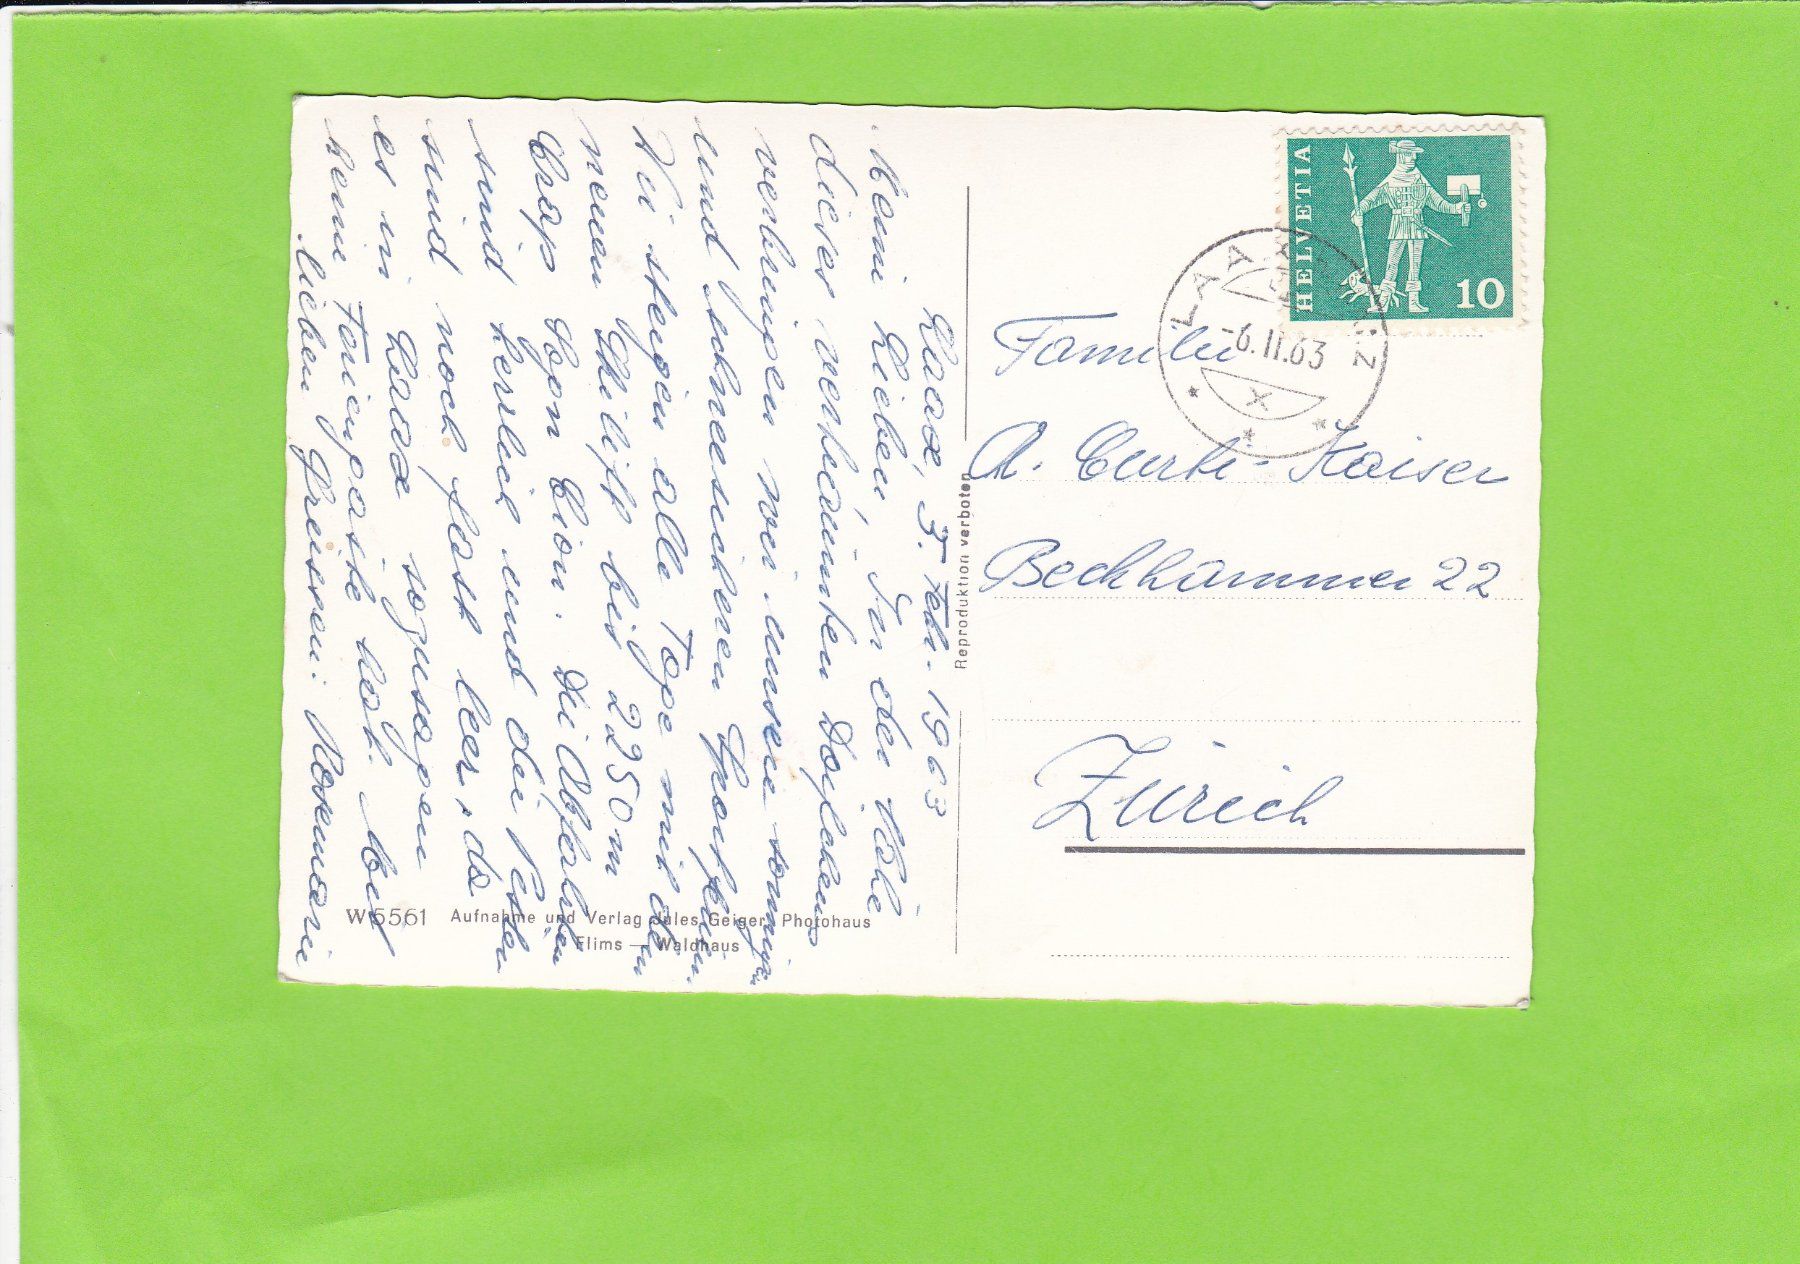 Laax, 5. Febr. 1963
Meine Lieben, In der Nähe
dieses verträumten Dörfchens
verbringen wir unsere sonnigen
und schneesicheren Sportferien.
Wir steigen alle Tage mit dem
neuen Skilift bis 2250 m
Crap Sogn Gion. Die Abfahrten
sind herrlich und die Pisten
sind noch fast leer, da
es in Laax sozusagen
keine Feriengäste hat. Mit
lieben Grüssen: Rosmarie
W5561 Aufnahme und Verlag Jules Geiger, Photohaus
Flims — Waldhaus
Reproduktion verboten
HELVETIA
10
LAAX
-6.II.63
X
Familie
A. Curti-Kaiser
Beckhammer 22
Zürich